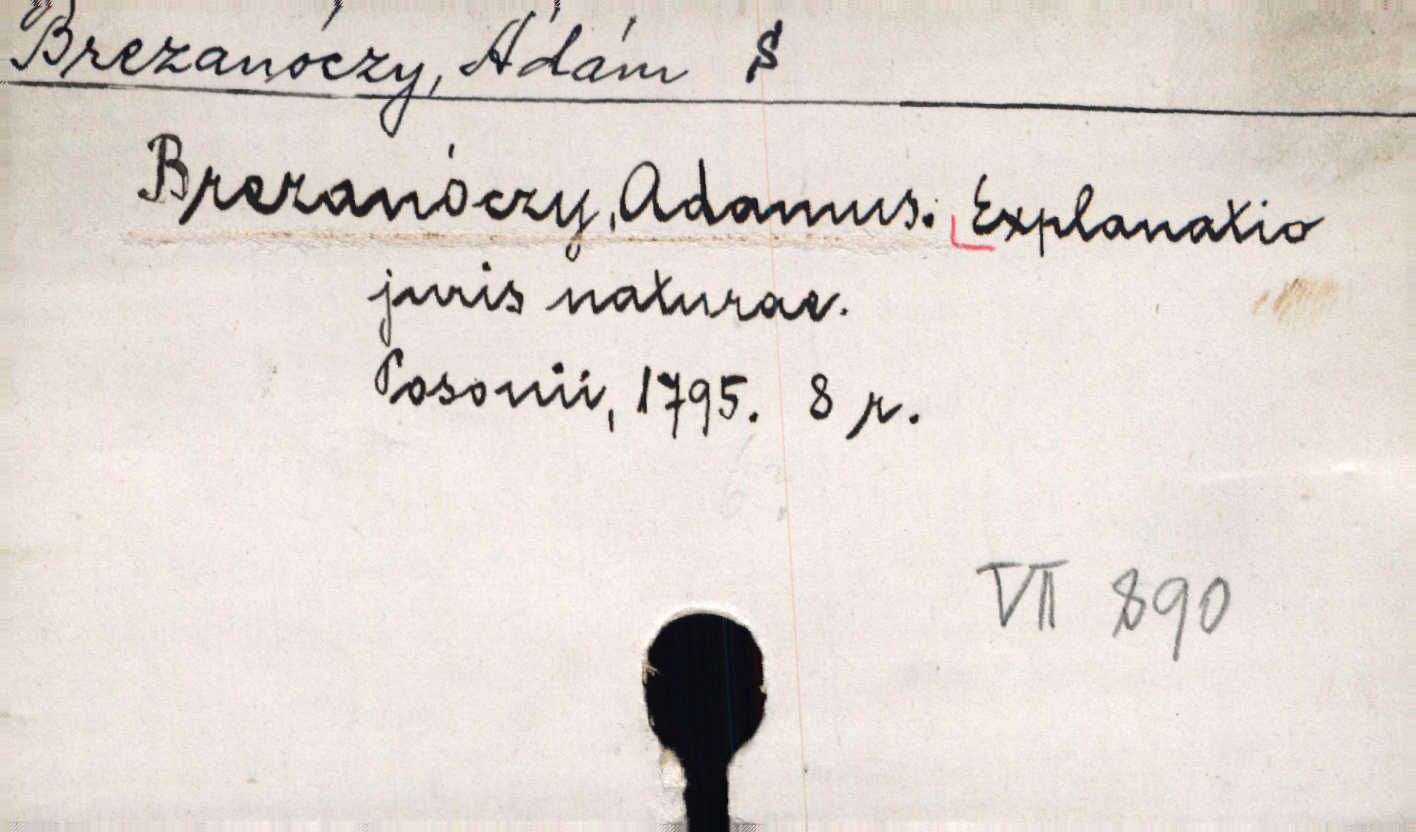 Brezanóczy, Ádám §
Brezanóczy, Adamus. Explanatio
juris naturae.
Posonii, 1795. 8 r.
VII 890